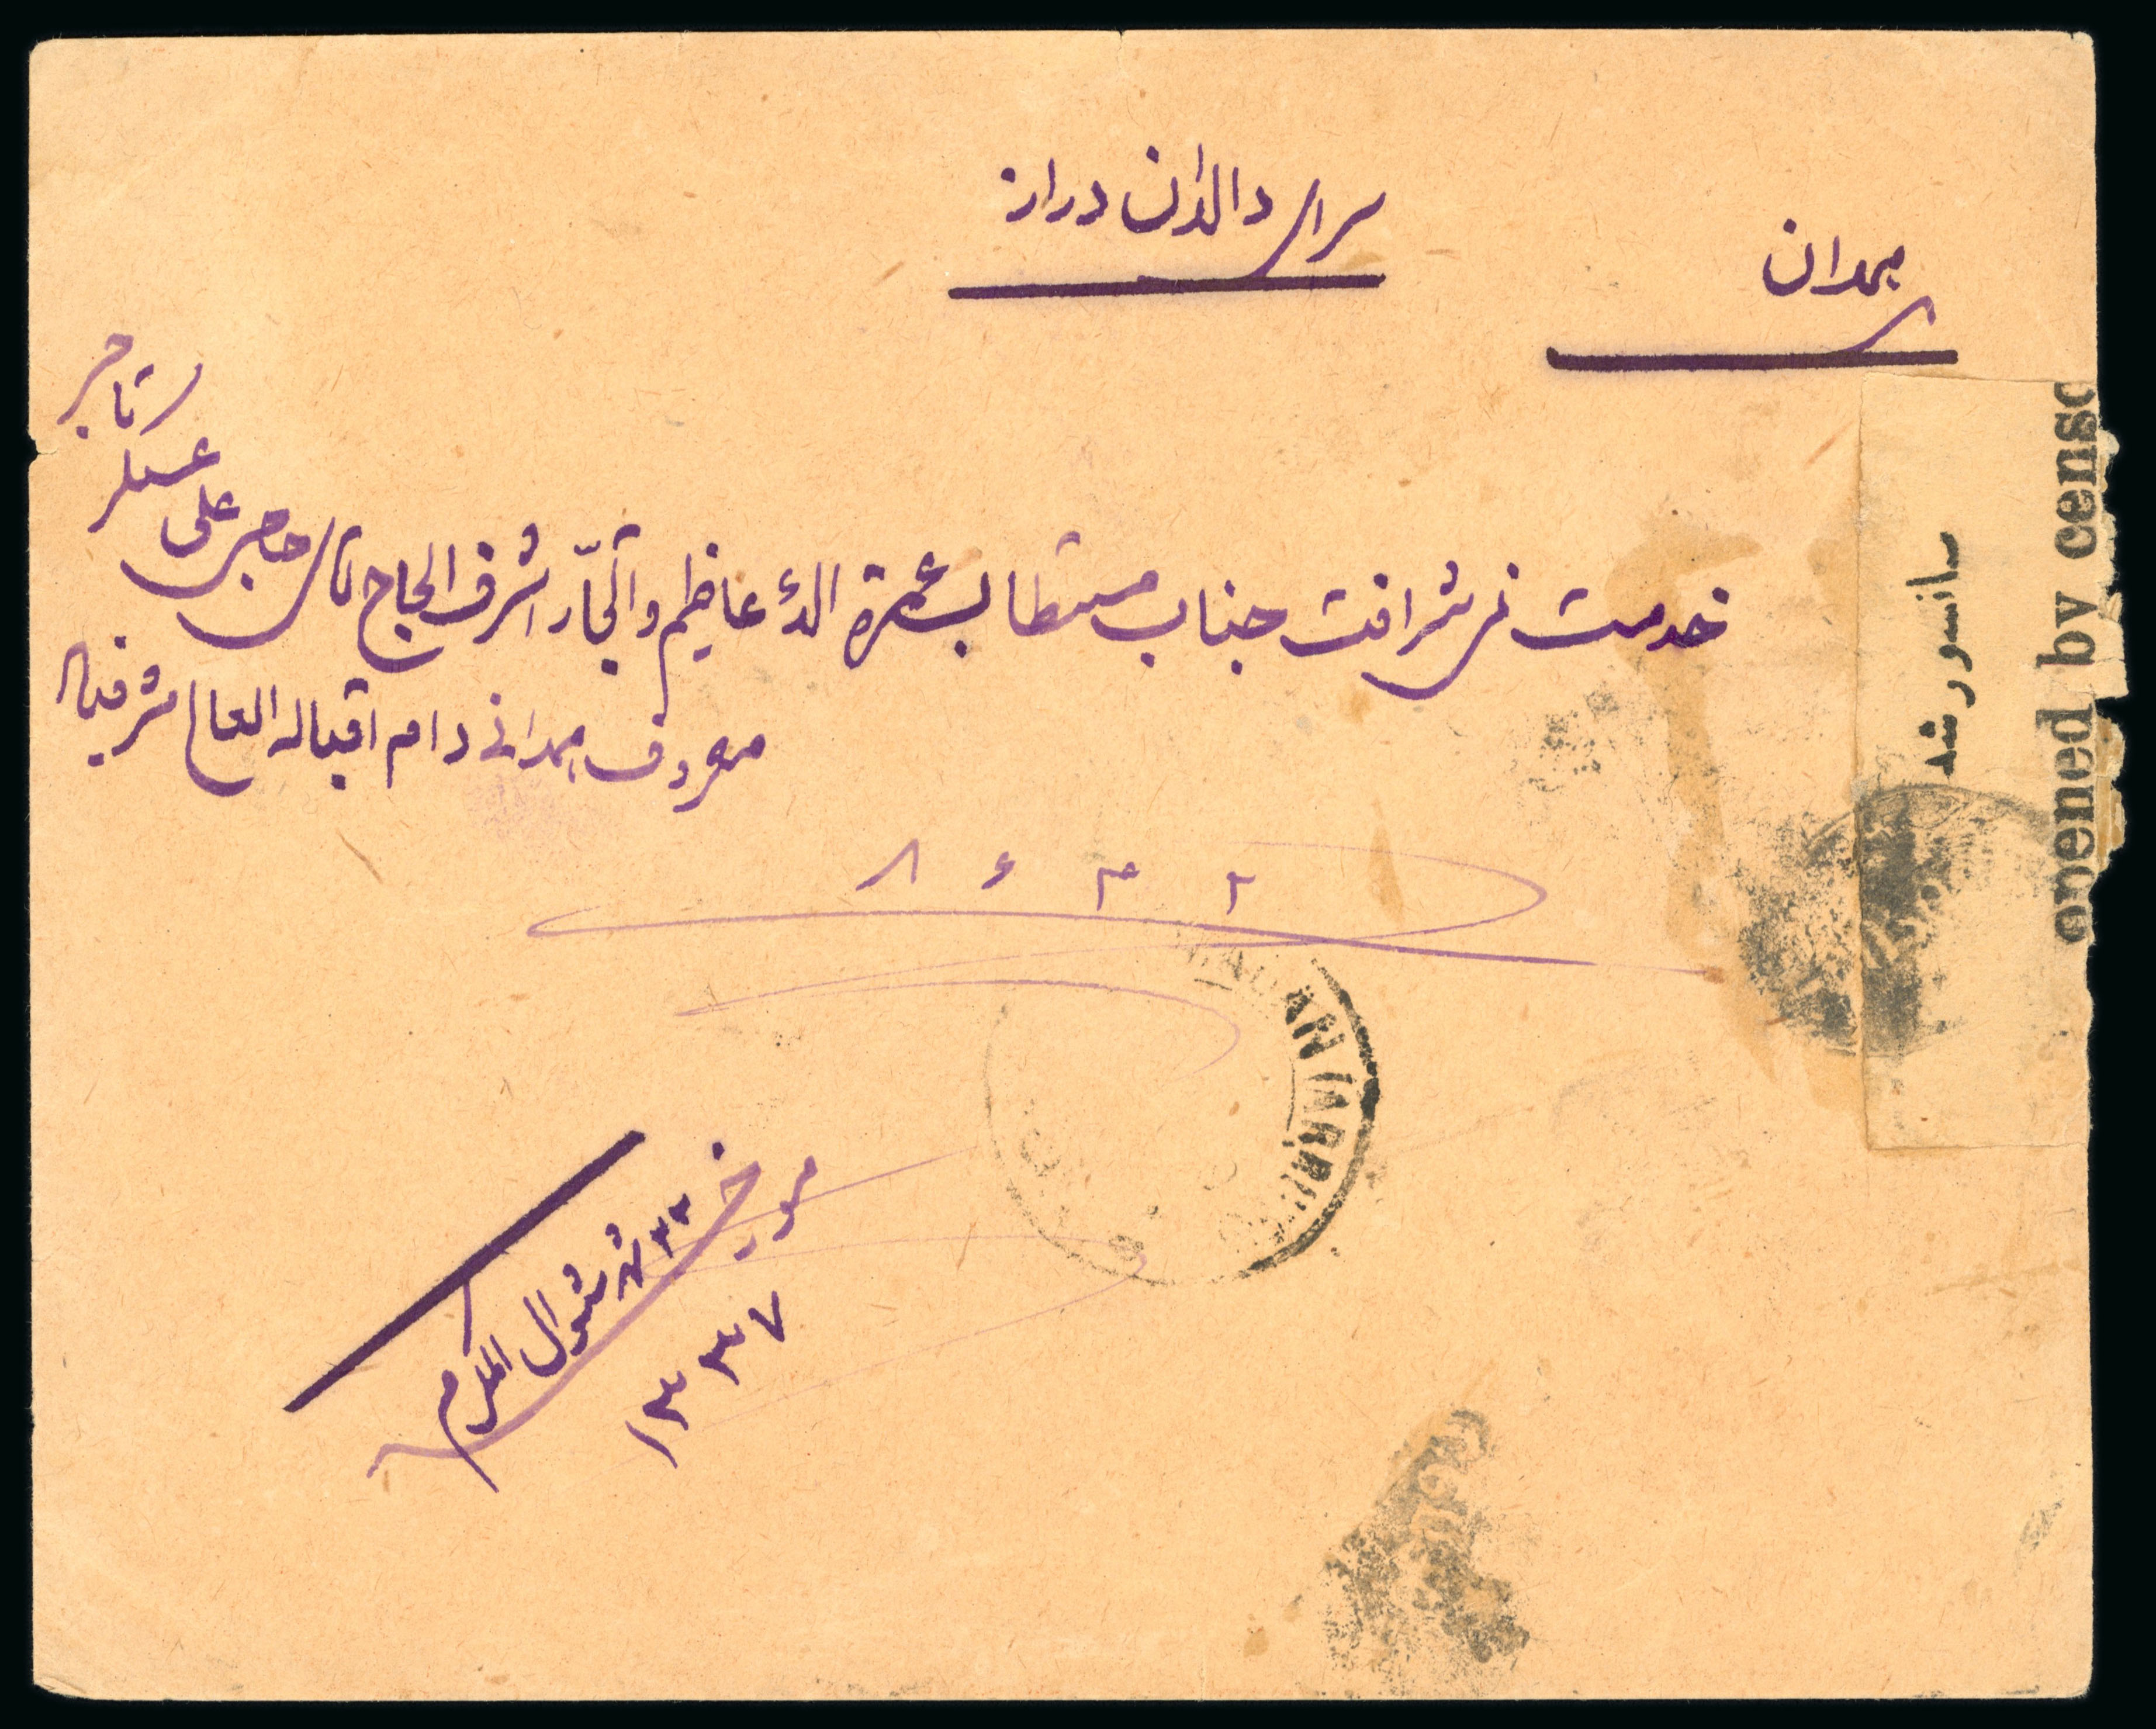 همدان
سرای دالان دراز
خدمت ذی شرافت جناب مستطاب عمدة الأعاظم والتجّار اشرف الحاج آقای حاجی علی عسکر تاجر
معروف همدانی دام اقباله العالی مشرف باد
۸۶۴۲
مورخه ۲۳ شهر شوال المکرم
۱۳۳۷
سانسور شد
opened by censo
ADAN (ARRI